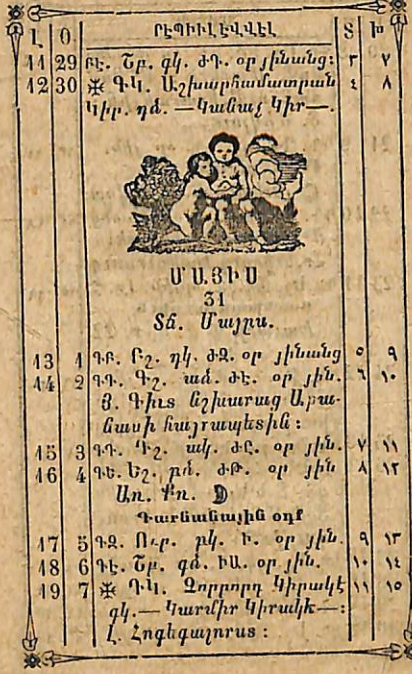 Լ Օ ՐԷՊԻԻԼԷՎՎԷԼ Տ Խ
11 29 ԲԷ. Շբ. զկ. ԺԴ. օր յինանց: ՟ ٣ ٧
12 30 ✠ ԳԿ. Աշխարհամատրան ٤ ٨
Կիր. ղձ. —Կանաչ Կիր—.
ՄԱՅԻՍ
31
Տճ. Մայըս.
13 1 ԳԲ. Բշ. ղկ. ԺԶ. օր յինանց ٥ ٩
14 2 ԳԳ. Գշ. աձ. ԺԷ. օր յին. ٦ ١٠
Յ. Գիւտ նշխարաց Աթա-
նասի հայրապետին :
15 3 ԳԴ. Դշ. ակ. ԺԸ. օր յին. ٧ ١١
16 4 ԳԵ. Եշ. բձ. ԺԹ. օր յին ٨ ١٢
Առ. Քռ.
Գարնանային օդք
17 5 ԳԶ. Ուր. բկ. Ի. օր յին. ٩ ١٣
18 6 ԳԷ. Շբ. գձ. ԻԱ. օր յին. ١٠ ١٤
19 7 ✠ ԴԿ. Չորրորդ Կիրակէ ١١ ١٥
գկ.— Կարմիր Կիրակէ—:
Լ. Հոգեգալուստ :